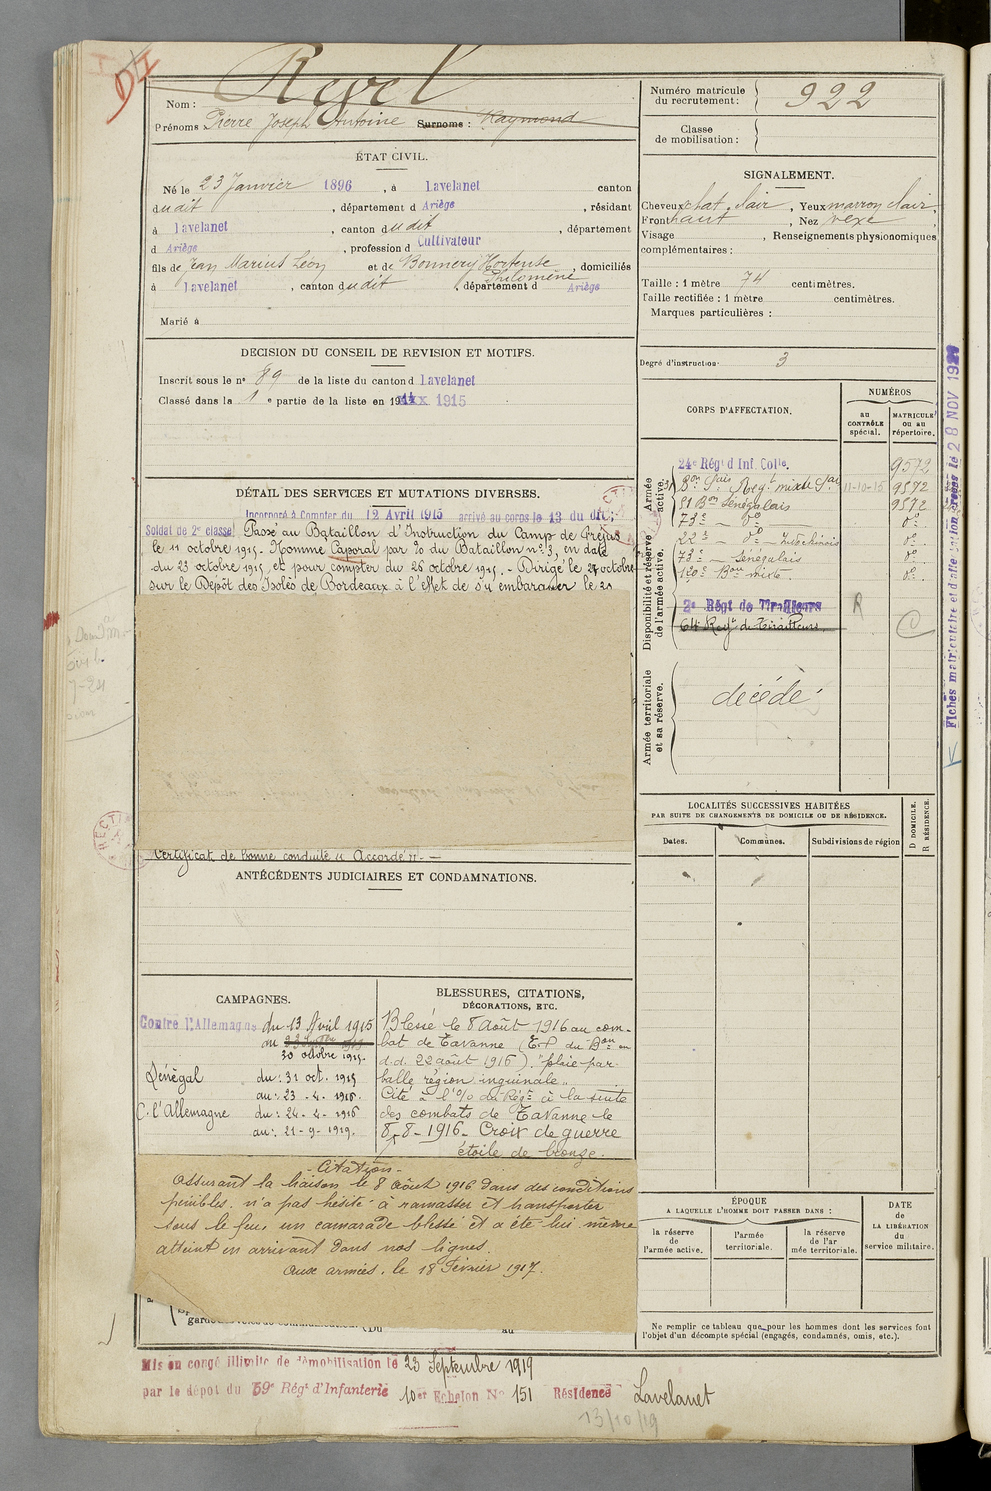 Revel
Nom :
Prénoms Pierre Joseph Antoine Surnome : Raymond
ÉTAT CIVIL.
Né le 23 Janvier 1896, à Lavelanet canton
dudit, département d Ariège, résidant
à Lavelanet, canton dudit, département
d Ariège, profession d Cultivateur
fils de Jean Marius Léon et de Bonnery Hortense Philomène, domiciliés
à Lavelanet, canton dudit, département d Ariège
Marié à
DECISION DU CONSEIL DE REVISION ET MOTIFS.
Inscrit sous le n° 89 de la liste du canton d Lavelanet
Classé dans la 1e partie de la liste en 1915
DÉTAIL DES SERVICES ET MUTATIONS DIVERSES.
Incorporé à Compter du 12 Avril 1915 arrivé au corps le 13 du dit,
Soldat de 2e classe Passé au Bataillon d'Instruction du Camp de Fréjus
le 11 octobre 1915. Nommé Caporal par du Bataillon n° 3, en date
du 23 octobre 1915 et pour compter du 26 octobre 1915. - Dirigé le 27 octobre
sur le Dépôt des Isolés de Bordeaux à l'effet de s'y embarquer le
Certificat de bonne conduite "Accordé"
ANTÉCÉDENTS JUDICIAIRES ET CONDAMNATIONS.
CAMPAGNES.
Contre l'Allemagne du 13 Avril 1915
au
30 octobre 1915.
Sénégal du : 31 oct. 1915
au : 23 - 4 - 1916.
C. l'Allemagne du : 24 - 4 - 1916
au : 21 - 9 - 1919.
BLESSURES, CITATIONS,
DÉCORATIONS, ETC.
Blessé le 8 Août 1916 au com-
bat de Tavanne (E.P. du Bon en
d.d. 22 août 1916) "plaie par
balle région inguinale"
Cité à l'O/ du Régt à la suite
des combats de Tavanne le
8-8-1916- Croix de guerre
étoile de bronze.
- Citation -
Assurant la liaison le 8 août 1916 dans des conditions
pénibles, n'a pas hésité à ramasser et transporter
sous le feu, un camarade blessé et a été lui même
atteint en arrivant dans nos lignes.
Aux armées, le 18 Février 1917.
Mis en congé illimité de démobilisation le 23 Septembre 1919
par le dépôt du 59e Régt d'Infanterie 10e Echelon N° 151 Résidence Lavelanet
13/10/19
Numéro matricule
du recrutement : 922
Classe
de mobilisation :
SIGNALEMENT.
Cheveux chat. clair, Yeux marron clair,
Front haut, Nez vexe
Visage , Renseignements physionomiques
complémentaires :
Taille : 1 mètre 74 centimètres.
Taille rectifiée : 1 mètre centimètres.
Marques particulières :
Degré d'instruction. 3
CORPS D'AFFECTATION.
NUMÉROS
au CONTRÔLE spécial.
MATRICULE ou au répertoire.
Armée active.
24e Régt d'Inf. Colle. 9572
Régt mixte 11-10-15 9572
51 Bon Sénégalais 9572
73e - do do
22e - do - Indochinois do
73e - Sénégalais do
120e Bon mixte do
Disponibilité et réserve de l'armée active.
2e Régt de Tirailleurs R
64 Regt de Tirailleurs
Armée territoriale et sa réserve.
décédé
LOCALITÉS SUCCESSIVES HABITÉES
PAR SUITE DE CHANGEMENTS DE DOMICILE OU DE RÉSIDENCE.
Dates.
Communes.
Subdivisions de région
D DOMICILE.
R RÉSIDENCE.
ÉPOQUE
A LAQUELLE L'HOMME DOIT PASSER DANS :
la réserve de l'armée active.
l'armée territoriale.
la réserve de l'ar mée territoriale.
DATE
de
LA LIBÉRATION
du
service militaire.
Ne remplir ce tableau que pour les hommes dont les services font
l'objet d'un décompte spécial (engagés, condamnés, omis, etc.).